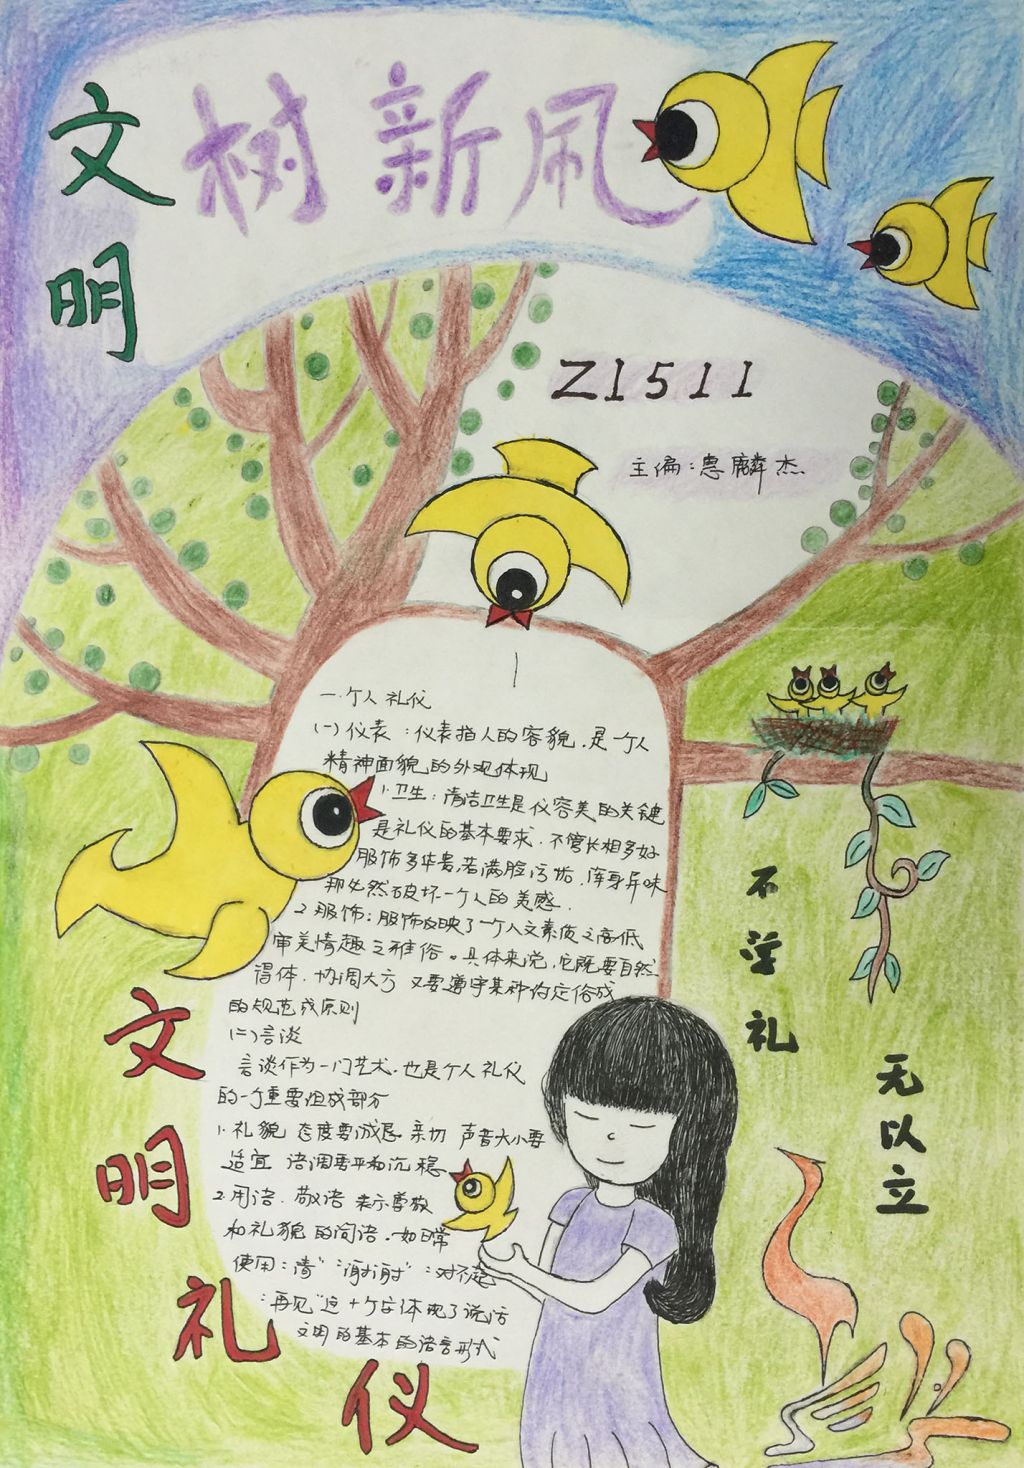 文明
树新风
Z1511
主编：惠麟杰
一.个人礼仪
(一)仪表：仪表指人的容貌,是一个人
精神面貌的外观体现
1.卫生：清洁卫生是仪容美的关键
是礼仪的基本要求.不管长相多好
服饰多华贵,若满脸污垢,浑身异味
那必然破坏一个人的美感.
2.服饰：服饰反映了一个人文素质之高低
审美情趣之雅俗。具体来说,它既要自然
得体.协调大方 又要遵守某种约定俗成
的规范或原则
(二)言谈
言谈作为一门艺术.也是个人礼仪
的一个重要组成部分
1.礼貌 态度要诚恳 亲切 声音大小要
适宜 语调要平和沉稳
2.用语.敬语 表示尊敬
和礼貌的词语.如日常
使用："请""谢谢""对不起"
"再见"这十个字体现了说话
文明的基本的语言形式
不学礼
无以立
文明礼仪